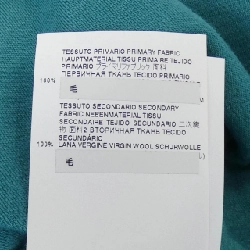 TESSUTO PRIMARIO PRIMARY FABRIC
HAUPTMATERIAL TISSU PRIMAIRE TEJIDO
PRIMARIO プライマリファブリック 面料
ПЕРВИЧНАЯ ТКАНЬ TECIDO PRIMÁRIO
100%
毛
TESSUTO SECONDARIO SECONDARY
FABRIC NEBENMATERIAL TISSU
SECONDAIRE TEJIDO SECUNDARIO 二次
ВТОРИЧНАЯ ТКАНЬ TECIDO
SECUNDÁRIO
100% LANA VERGINE VIRGIN WOOL SCHURWOLLE
毛